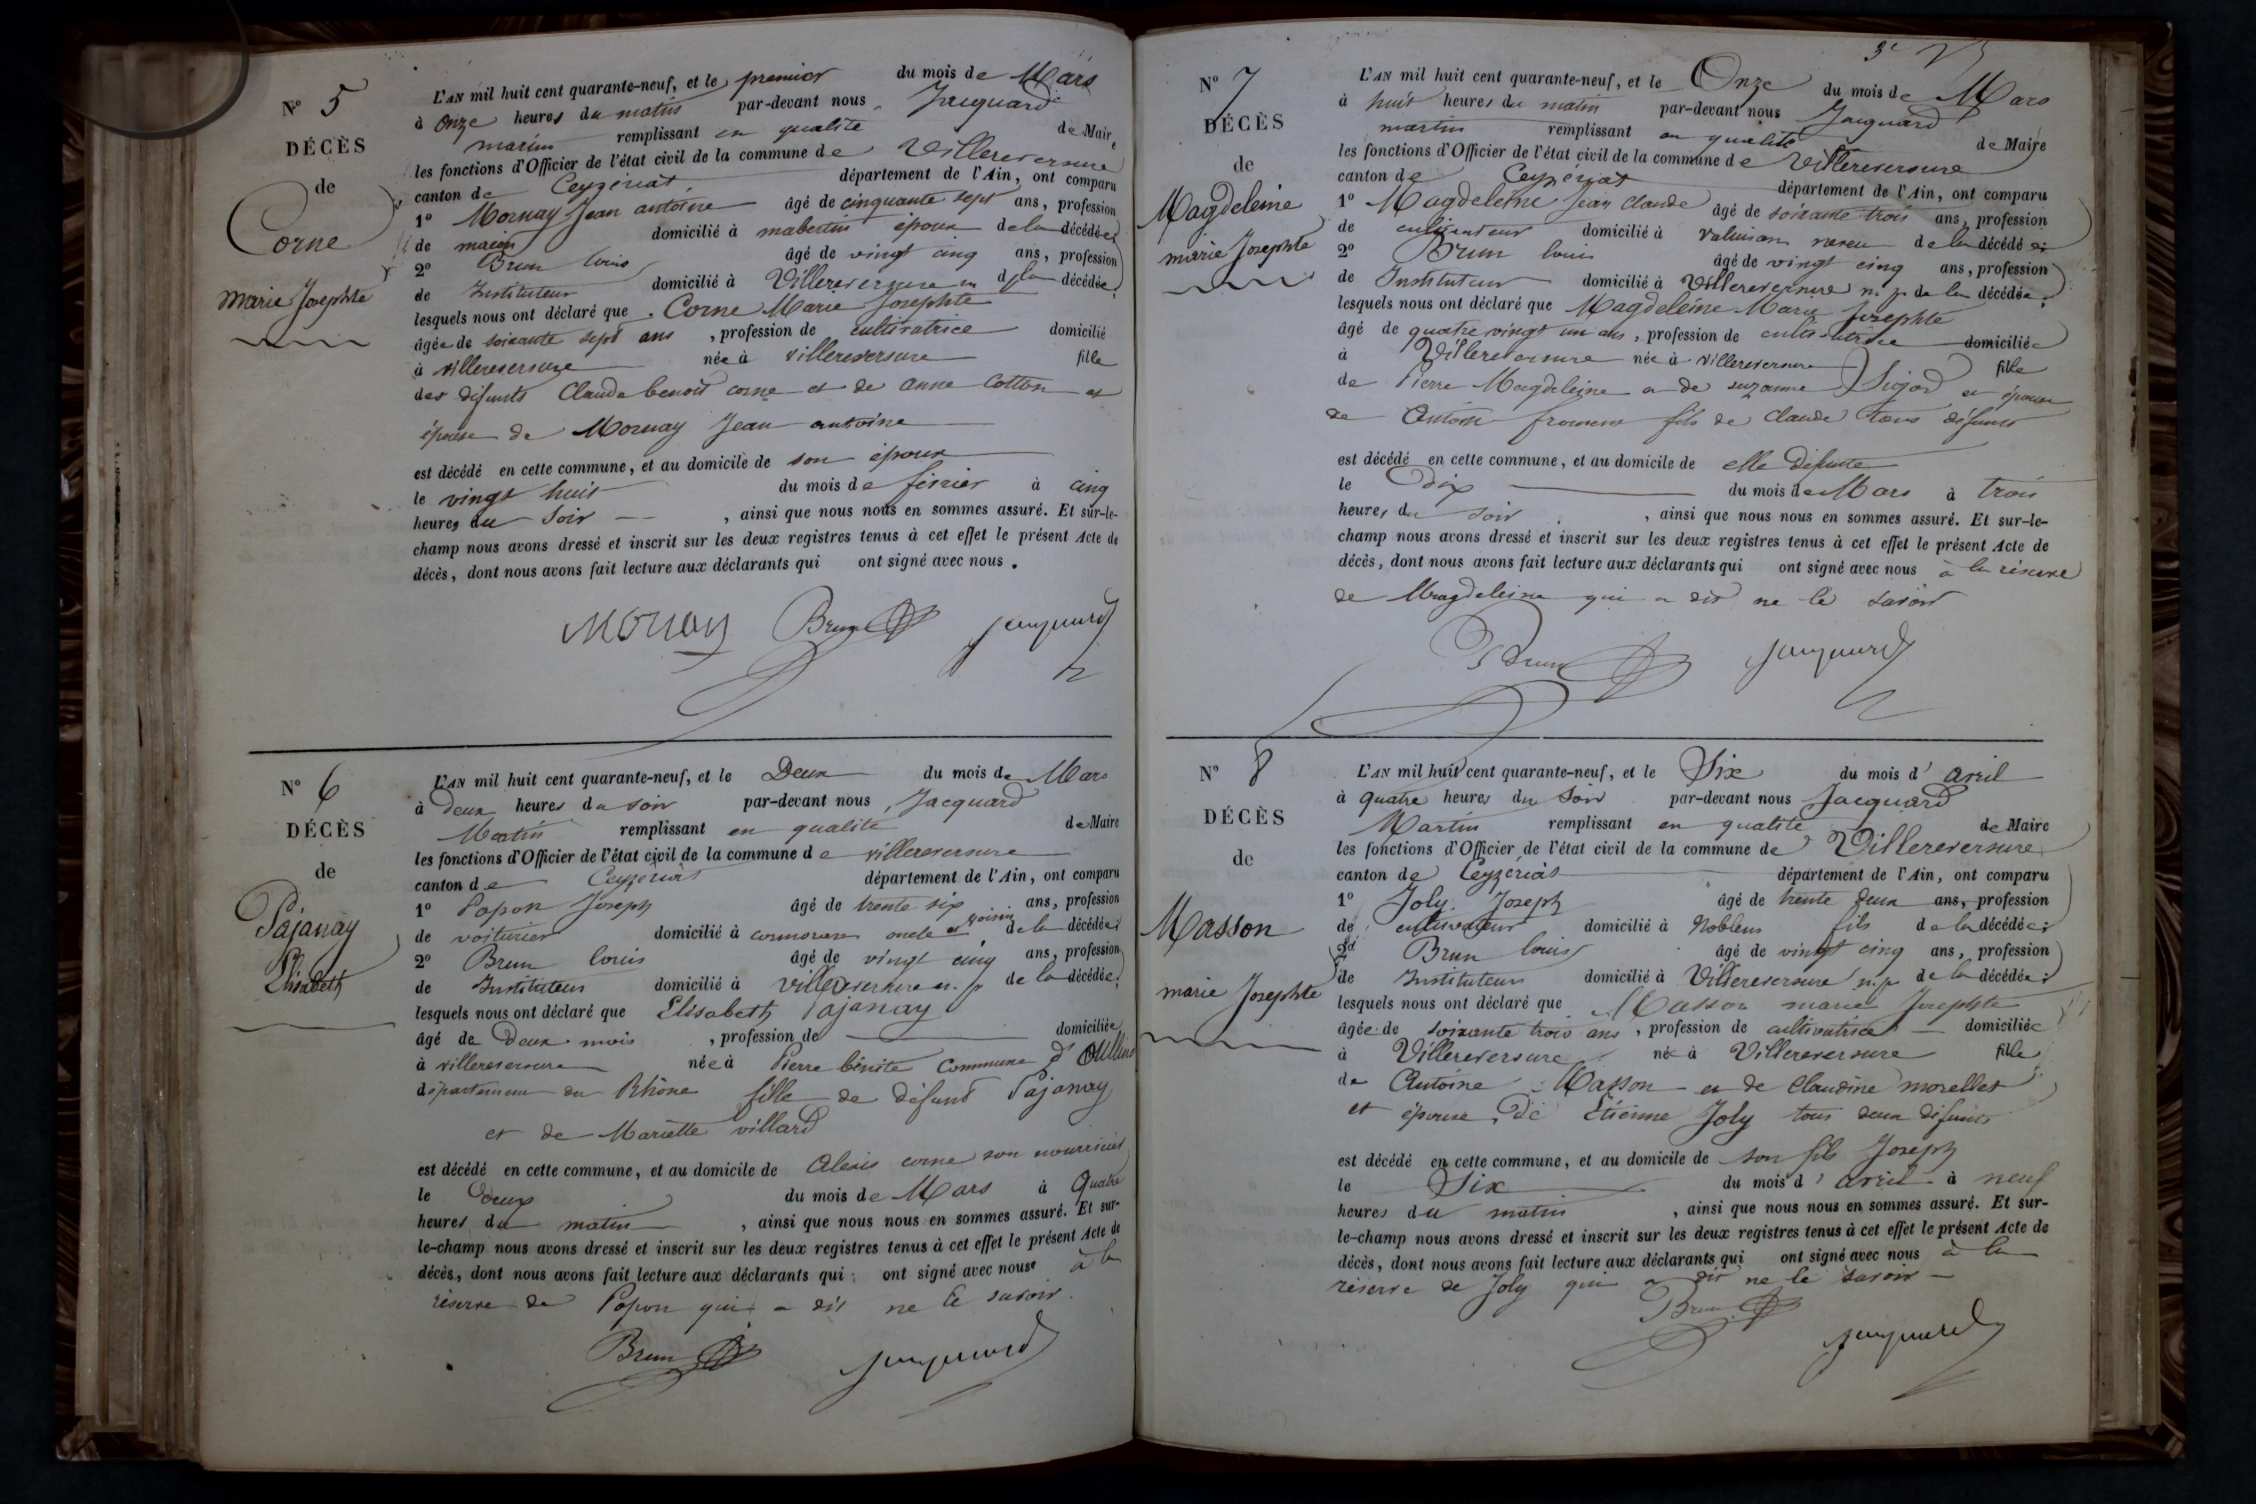 N° 5
DÉCÈS
de
Corne
marie Josephte
L'AN mil huit cent quarante-neuf, et le premier du mois de Mars
à onze heures du matin par-devant nous Jacquard
martin remplissant en qualité de Maire
les fonctions d'Officier de l'état civil de la commune de Villereversure
canton de Ceyzériat département de l'Ain, ont comparu
1° Mornay Jean antoine âgé de cinquante sept ans, profession
de maçon domicilié à mabertin époux de la décédée;
2° Brun louis âgé de vingt cinq ans, profession
de Instituteur domicilié à Villereversure de la décédée;
lesquels nous ont déclaré que Corne Marie Josephte
âgée de soixante sept ans, profession de cultivatrice domicilié
à villereversure née à villereversure fille
des défunts Claude benoit corne et de anne Cotton et
épouse de Mornay Jean antoine
est décédé en cette commune, et au domicile de son époux
le vingt huit du mois de février à cinq
heures du soir, ainsi que nous nous en sommes assuré. Et sur-le-
champ nous avons dressé et inscrit sur les deux registres tenus à cet effet le présent Acte de
décès, dont nous avons fait lecture aux déclarants qui ont signé avec nous.
Mornay Brun Jacquard
N° 6
DÉCÈS
de
Pajanay
Elisabeth
L'AN mil huit cent quarante-neuf, et le Deux du mois de Mars
à deux heures du soir par-devant nous, Jacquard
Martin remplissant en qualité de Maire
les fonctions d'Officier de l'état civil de la commune de villereversure
canton de Ceyzériat département de l'Ain, ont comparu
1° Papon Joseph âgé de trente six ans, profession
de voiturier domicilié à cormoran oncle et voisin de la décédée;
2° Brun louis âgé de vingt cinq ans, profession
de Instituteur domicilié à villereversure n. p de la décédée;
lesquels nous ont déclaré que Elisabeth Pajanay
âgé de Deux mois, profession de domiciliée
à villereversure née à Pierre bénite Commune d'Oullins
département du Rhône fille de défunt Pajanay
et de Mariette villard
est décédé en cette commune, et au domicile de Alexis corne son nourricier
le deux du mois de Mars à Quatre
heures du matin, ainsi que nous nous en sommes assuré. Et sur-
le-champ nous avons dressé et inscrit sur les deux registres tenus à cet effet le présent Acte de
décès, dont nous avons fait lecture aux déclarants qui ont signé avec nous à la
réserve de Papon qui a dit ne le savoir.
Brun Jacquard
N° 7
DÉCÈS
de
Magdeleine
marie Josephte
L'AN mil huit cent quarante-neuf, et le Onze du mois de Mars
à huit heures du matin par-devant nous Jacquard
martin remplissant en qualité de Maire
les fonctions d'Officier de l'état civil de la commune de Villereversure
canton de Ceyzériat département de l'Ain, ont comparu
1° Magdeleine Jean Claude âgé de soixante trois ans, profession
de cultivateur domicilié à neveu de la décédé
2° Brun louis âgé de vingt cinq ans, profession
de Instituteur domicilié à Villereversure n. p. de la décédée;
lesquels nous ont déclaré que Magdeleine Marie Josephte
âgé de quatre vingt un ans, profession de cultivatrice domiciliée
à Villereversure née à villereversure fille
de Pierre Magdeleine et de suzanne et épouse
de Antoine froment fils de Claude tous défunts
est décédé en cette commune, et au domicile de elle défunte
le dix du mois de Mars à trois
heures du soir, ainsi que nous nous en sommes assuré. Et sur-le-
champ nous avons dressé et inscrit sur les deux registres tenus à cet effet le présent Acte de
décès, dont nous avons fait lecture aux déclarants qui ont signé avec nous à la réserve
de Magdeleine qui a dit ne le savoir
Brun Jacquard
N° 8
DÉCÈS
de
Masson
marie Josephte
L'AN mil huit cent quarante-neuf, et le Six du mois d'avril
à quatre heures du Soir par-devant nous Jacquard
Martin remplissant en qualité de Maire
les fonctions d'Officier de l'état civil de la commune de Villereversure
canton de Ceyzériat département de l'Ain, ont comparu
1° Joly Joseph âgé de trente deux ans, profession
de cultivateur domicilié à Noblens fils de la décédée;
2° Brun louis âgé de vingt cinq ans, profession
de Instituteur domicilié à Villereversure n. p. de la décédée;
lesquels nous ont déclaré que Masson marie Josephte
âgée de soixante trois ans, profession de cultivatrice domiciliée
à Villereversure né à Villereversure fille
de Antoine Masson et de Claudine morellet
et épouse de Etienne Joly tous deux défunts
est décédé en cette commune, et au domicile de son fils Joseph
le Six du mois d'avril à neuf
heures du matin, ainsi que nous nous en sommes assuré. Et sur-
le-champ nous avons dressé et inscrit sur les deux registres tenus à cet effet le présent Acte de
décès, dont nous avons fait lecture aux déclarants qui ont signé avec nous à la
réserve de Joly qui a dit ne le savoir
Brun Jacquard